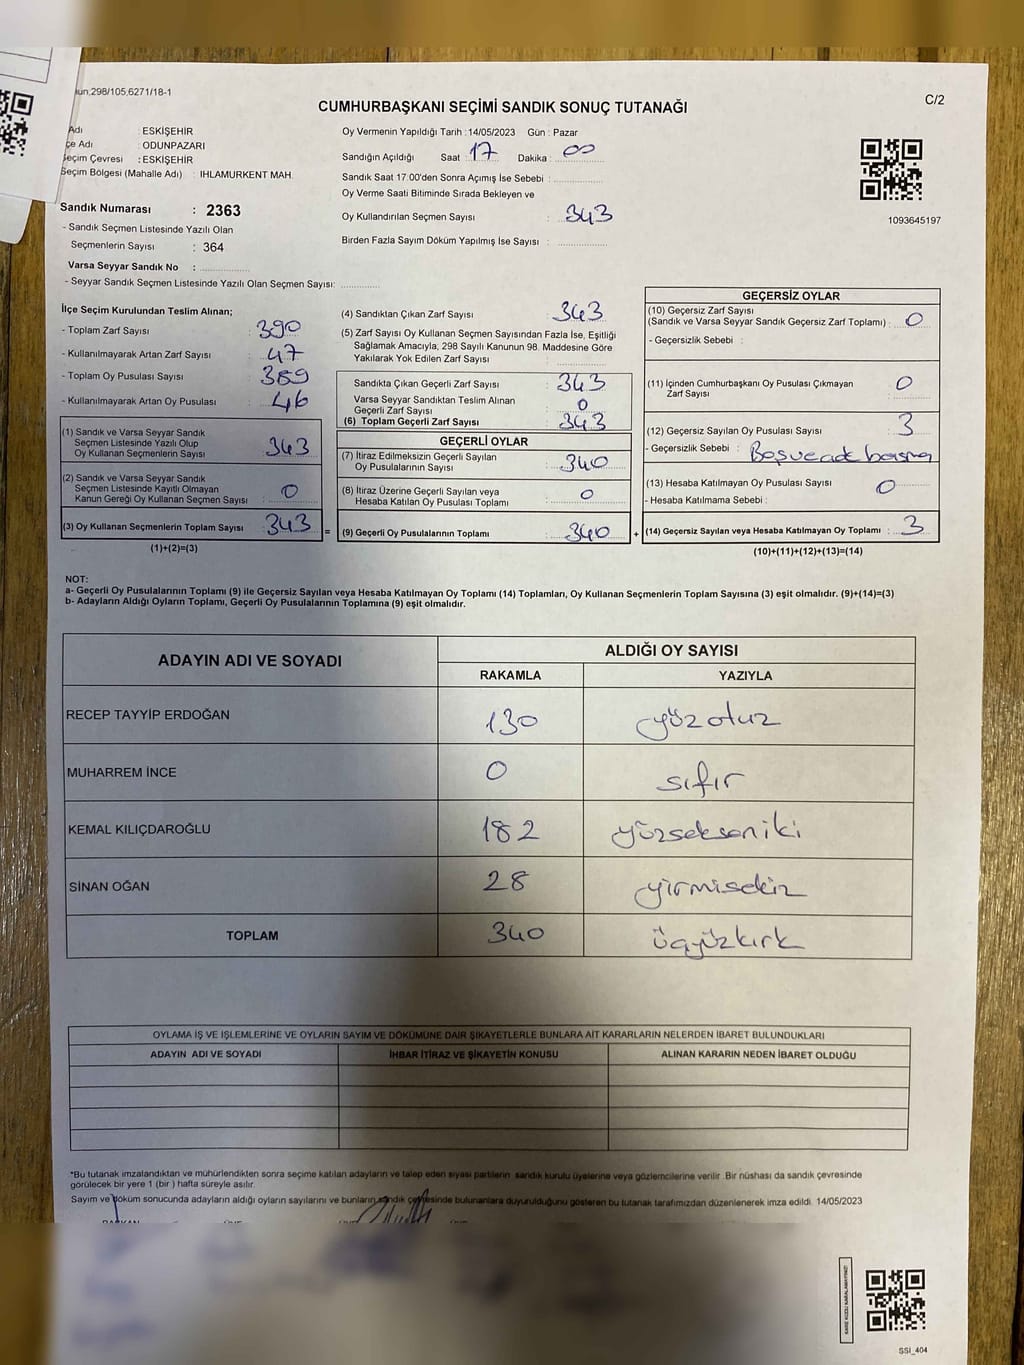 298/105,6271/18-1
C/2
CUMHURBAŞKANI SEÇİMİ SANDIK SONUÇ TUTANAĞI
Adı : ESKİŞEHİR
Adı : ODUNPAZARI
Seçim Çevresi : ESKİŞEHİR
Seçim Bölgesi (Mahalle Adı) : IHLAMURKENT MAH.
Oy Vermenin Yapıldığı Tarih :14/05/2023 Gün : Pazar
Sandığın Açıldığı Saat : 17 Dakika : 00
Sandık Saat 17:00'den Sonra Açımış İse Sebebi :
Oy Verme Saati Bitiminde Sırada Bekleyen ve
Oy Kullandırılan Seçmen Sayısı : 343
Birden Fazla Sayım Döküm Yapılmış İse Sayısı :
1093645197
Sandık Numarası : 2363
- Sandık Seçmen Listesinde Yazılı Olan
Seçmenlerin Sayısı : 364
Varsa Seyyar Sandık No :
- Seyyar Sandık Seçmen Listesinde Yazılı Olan Seçmen Sayısı:
İlçe Seçim Kurulundan Teslim Alınan;
- Toplam Zarf Sayısı : 390
- Kullanılmayarak Artan Zarf Sayısı : 47
- Toplam Oy Pusulası Sayısı : 389
- Kullanılmayarak Artan Oy Pusulası : 46
(1) Sandık ve Varsa Seyyar Sandık
Seçmen Listesinde Yazılı Olup
Oy Kullanan Seçmenlerin Sayısı : 343
(2) Sandık ve Varsa Seyyar Sandık
Seçmen Listesinde Kayıtlı Olmayan
Kanun Gereği Oy Kullanan Seçmen Sayısı : 0
(3) Oy Kullanan Seçmenlerin Toplam Sayısı : 343
(1)+(2)=(3)
(4) Sandıktan Çıkan Zarf Sayısı : 343
(5) Zarf Sayısı Oy Kullanan Seçmen Sayısından Fazla İse, Eşitliği
Sağlamak Amacıyla, 298 Sayılı Kanunun 98. Maddesine Göre
Yakılarak Yok Edilen Zarf Sayısı :
Sandıkta Çıkan Geçerli Zarf Sayısı : 343
Varsa Seyyar Sandıktan Teslim Alınan
Geçerli Zarf Sayısı : 0
(6) Toplam Geçerli Zarf Sayısı : 343
GEÇERLİ OYLAR
(7) İtiraz Edilmeksizin Geçerli Sayılan
Oy Pusulalarının Sayısı : 340
(8) İtiraz Üzerine Geçerli Sayılan veya
Hesaba Katılan Oy Pusulası Toplamı : 0
= (9) Geçerli Oy Pusulalarının Toplamı : 340 +
GEÇERSİZ OYLAR
(10) Geçersiz Zarf Sayısı
(Sandık ve Varsa Seyyar Sandık Geçersiz Zarf Toplamı) : 0
- Geçersizlik Sebebi :
(11) İçinden Cumhurbaşkanı Oy Pusulası Çıkmayan
Zarf Sayısı : 0
(12) Geçersiz Sayılan Oy Pusulası Sayısı : 3
- Geçersizlik Sebebi :
(13) Hesaba Katılmayan Oy Pusulası Sayısı : 0
- Hesaba Katılmama Sebebi :
(14) Geçersiz Sayılan veya Hesaba Katılmayan Oy Toplamı : 3
(10)+(11)+(12)+(13)=(14)
NOT:
a- Geçerli Oy Pusulalarının Toplamı (9) ile Geçersiz Sayılan veya Hesaba Katılmayan Oy Toplamı (14) Toplamları, Oy Kullanan Seçmenlerin Toplam Sayısına (3) eşit olmalıdır. (9)+(14)=(3)
b- Adayların Aldığı Oyların Toplamı, Geçerli Oy Pusulalarının Toplamına (9) eşit olmalıdır.
ADAYIN ADI VE SOYADI
ALDIĞI OY SAYISI
RAKAMLA YAZIYLA
RECEP TAYYİP ERDOĞAN 130 yüzotuz
MUHARREM İNCE 0 sıfır
KEMAL KILIÇDAROĞLU 182 yüzsekseniki
SİNAN OĞAN 28 yirmisekiz
TOPLAM 340 üçyüzkırk
OYLAMA İŞ VE İŞLEMLERİNE VE OYLARIN SAYIM VE DÖKÜMÜNE DAİR ŞİKAYETLERLE BUNLARA AİT KARARLARIN NELERDEN İBARET BULUNDUKLARI
ADAYIN ADI VE SOYADI İHBAR İTİRAZ VE ŞİKAYETİN KONUSU ALINAN KARARIN NEDEN İBARET OLDUĞU
*Bu tutanak imzalandıktan ve mühürlendikten sonra seçime katılan adayların ve talep eden siyasi partilerin sandık kurulu üyelerine veya gözlemcilerine verilir. Bir nüshası da sandık çevresinde
görülecek bir yere 1 (bir) hafta süreyle asılır.
Sayım ve döküm sonucunda adayların aldığı oyların sayılarını ve bunların sandık çevresinde bulunanlara duyurulduğunu gösteren bu tutanak tarafımızdan düzenlenerek imza edildi. 14/05/2023
SSİ_404